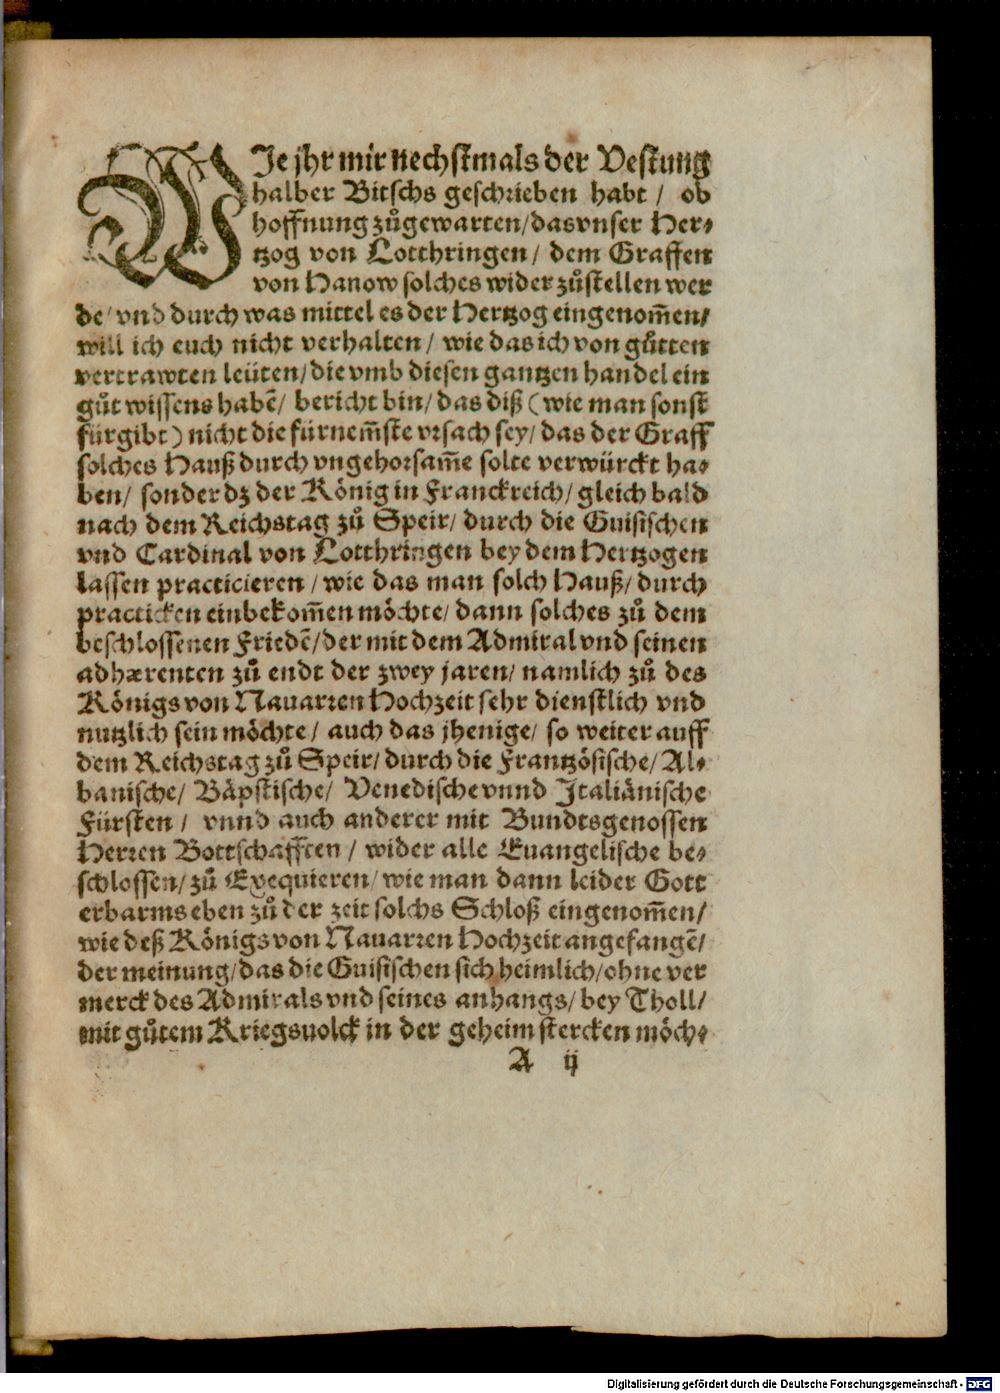 WJe jhr mir nechstmals der Vestung
halber Bitschs geschrieben habt / ob
hoffnung zůgewarten / das vnser Her⸗
tzog von Lotthringen / dem Graffen
von Hanow solches wider zůstellen wer
de / vnd durch was mittel es der Hertzog eingenom̃en /
will ich euch nicht verhalten / wie das ich von gůtten
vertrawten leüten / die vmb diesen gantzen handel ein
gůt wissens habẽ / bericht bin / das diß (wie man sonst
fürgibt) nicht die fürnem̃ste vrsach sey / das der Graff
solches Hauß durch vngehorsam̃e solte verwürckt ha⸗
ben / sonder dz der König in Franckreich / gleich bald
nach dem Reichstag zů Speir / durch die Guisischen
vnd Cardinal von Lotthringen bey dem Hertzogen
lassen practicieren / wie das man solch Hauß / durch
practicken einbekom̃en möchte / dann solches zů dem
beschlossenen Friedẽ / der mit dem Admiral vnd seinen
adhærenten zů endt der zwey jaren / namlich zů des
Königs von Nauarren Hochzeit sehr dienstlich vnd
nutzlich sein möchte / auch das jhenige / so weiter auff
dem Reichstag zů Speir / durch die Frantzösische / Al⸗
banische / Bäpstische / Venedische vnnd Jtaliänische
Fürsten / vnnd auch anderer mit Bundtsgenossen
Herren Bottschafften / wider alle Euangelische be⸗
schlossen / zů Exequieren / wie man dann leider Gott
erbarms eben zů der zeit solchs Schloß eingenom̃en /
wie deß Königs von Nauarren Hochzeit angefangẽ /
der meinung / das die Guisischen sich heimlich / ohne ver
merck des Admirals vnd seines anhangs / bey Tholl /
mit gůtem Kriegsuolck in der geheim stercken möch⸗
A ij
Digitalisierung gefördert durch die Deutsche Forschungsgemeinschaft - DFG